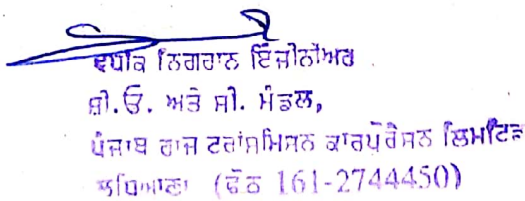 ਵਧੀਕ ਨਿਗਰਾਨ ਇੰਜੀਨੀਅਰ
ਸ਼ੀ.ਓ. ਅਤੇ ਸੀ. ਮੰਡਲ,
ਪੰਜਾਬ ਰਾਜ ਟਰਾਂਸਮਿਸਨ ਕਾਰਪੋਰੈਸਨ ਲਿਮਟਿਡ
ਲੁਧਿਆਣਾ (ਫੋਨ 161-2744450)